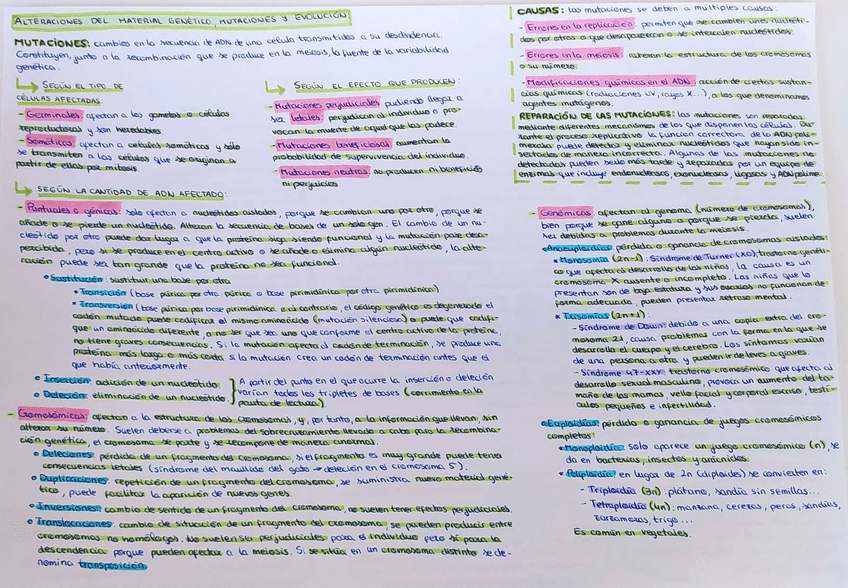 ALTERACIONES DEL MATERIAL GENÉTICO, MUTACIONES Y EVOLUCIÓN:
MUTACIONES: cambios en la secuencia de ADN de una célula transmitidos a su descendencia.
Constituyen, junto a la recombinación que se produce en la meiosis, la fuente de la variabilidad
genética.
SEGÚN EL TIPO DE
CÉLULAS AFECTADAS:
- Germinales: afectan a los gametos o células
reproductoras y son heredables
- Somáticas: afectan a células somáticas y sólo
se transmiten a las células que se originan a
partir de ellas por mitosis
SEGÚN EL EFECTO QUE PRODUCEN:
- Mutaciones perjudiciales: pudiendo llegar a
ser letales, perjudican al individuo o pro-
vocan la muerte de aquel que las padece.
- Mutaciones beneficiosas: aumentan la
probabilidad de supervivencia del individuo.
- Mutaciones neutras: no producen ni beneficios
ni perjuicios
SEGÚN LA CANTIDAD DE ADN AFECTADO:
- Puntuales o génicas: solo afectan a nucleótidos aislados, porque se cambian uno por otro, porque se
añade o se pierde un nucleótido. Alteran la secuencia de bases de un solo gen. El cambio de un nu-
cleótido por otro puede dar lugar a que la proteína siga siendo funcional y la mutación pase desa-
percibida, pero si se produce en el centro activo o se añade o elimina algún nucleótido, la alte-
ración puede ser tan grande que la proteína no sea funcional.
• Sustitución: sustituir una base por otra
• Transición (base púrica por otra púrica o base pirimidínica por otra pirimidínica)
• Transversión (base púrica por base pirimidínica o al contrario, el código genético es degenerado el
codón mutado puede codificar el mismo aminoácido (mutación silenciosa) o puede que codifi-
que un aminoácido diferente, a no ser que sea uno que conforme el centro activo de la proteína,
no tiene graves consecuencias. Si la mutación afecta al codón de terminación, se produce una
proteína más larga o más corta si la mutación crea un codón de terminación antes que el
que había anteriormente.
• Inserción: adición de un nucleótido
• Deleción: eliminación de un nucleótido
A partir del punto en el que ocurre la inserción o deleción
varían todos los tripletes de bases (corrimiento en la
pauta de lectura).
- Cromosómicas: afectan a la estructura de los cromosomas, y, por tanto, a la información que llevan, sin
alterar su número. Suelen deberse a problemas del sobrecruzamiento llevado a cabo para la recombina-
ción genética, el cromosoma se parte y se recompone de manera anormal.
• Deleciones: pérdida de un fragmento del cromosoma, si el fragmento es muy grande puede tener
consecuencias letales (síndrome del maullido del gato → deleción en el cromosoma 5).
• Duplicaciones: repetición de un fragmento del cromosoma, se suministra nuevo material gené-
tico, puede facilitar la aparición de nuevos genes.
• Inversiones: cambio de sentido de un fragmento del cromosoma, no suelen tener efectos perjudiciales.
• Translocaciones: cambio de situación de un fragmento del cromosoma, se pueden producir entre
cromosomas no homólogos. No suelen ser perjudiciales para el individuo pero sí para la
descendencia porque pueden afectar a la meiosis. Si se sitúa en un cromosoma distinto se de-
nomina transposición.
CAUSAS: las mutaciones se deben a múltiples causas:
- Errores en la replicación: permiten que se cambien unos nucleóti-
dos por otros o que desaparezcan o se intercalen nucleótidos.
- Errores en la meiosis: alteran la estructura de los cromosomas
o su número.
- Modificaciones químicas en el ADN: acción de ciertas sustan-
cias químicas (radiaciones UV, rayos X...), a los que denominamos
agentes mutágenos.
REPARACIÓN DE LAS MUTACIONES: las mutaciones son reparadas
mediante diferentes mecanismos de los que disponen las células. Du-
rante el proceso replicativo la función correctora de la ADN poli-
merasa puede detectar y eliminar nucleótidos que hayan sido in-
sertados de manera incorrecta. Algunas de las mutaciones no
detectadas pueden serlo más tarde y reparadas por un equipo de
enzimas que incluye endonucleasas, exonucleasas, ligasas y ADN polime-
- Genómicas: afectan al genoma (número de cromosomas),
bien porque se gane alguno o porque se pierda, suelen
ser debidas a problemas durante la meiosis.
• Aneuploidías: pérdida o ganancia de cromosomas aislados:
• Monosomía (2n-1): Síndrome de Turner (X0), trastorno genéti-
co que afecta al desarrollo de las niñas, la causa es un
cromosoma X ausente o incompleto. Las niñas que lo
presentan son de baja estatura y sus ovarios no funcionan de
forma adecuada, pueden presentar retraso mental.
(2n+1):
- Síndrome de Down: debido a una copia extra del cro-
mosoma 21, causa problemas con la forma en la que se
desarrolla el cuerpo y el cerebro. Los síntomas varían
de una persona a otra y pueden ir de leves a graves.
- Síndrome 47-XXY: trastorno cromosómico que afecta al
desarrollo sexual masculino, provoca un aumento del ta-
maño de las mamas, vello facial y corporal escaso, testí-
culos pequeños e infertilidad.
• Euploidías: pérdida o ganancia de juegos cromosómicos
completos:
• Monoploidía: solo aparece un juego cromosómico (n), se
da en bacterias, insectos y
• Poliploidía: en lugar de 2n (diploides) se convierten en:
- Triploidía (3n): plátano, sandía sin semillas...
- Tetraploidía (4n): manzana, cerezas, peras, sandías,
zarzamoras, trigo...
Es común en vegetales.